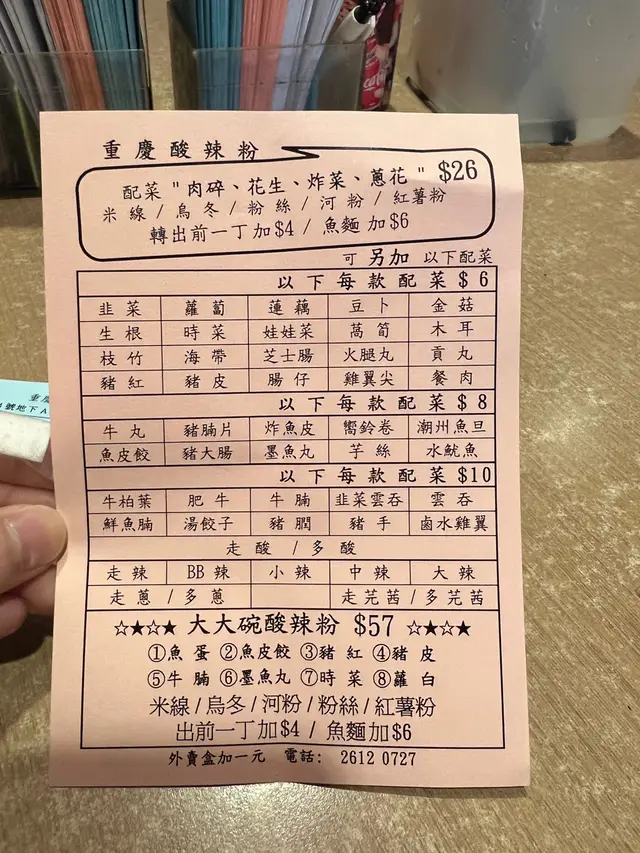 重慶酸辣粉
配菜 "肉碎、花生、炸菜、蔥花" $26
米線/烏冬/粉絲/河粉/紅薯粉
轉出前一丁加$4 / 魚麵加$6
可 另加 以下配菜
以下每款配菜$6
韭菜 蘿蔔 蓮藕 豆卜 金菇
生根 時菜 娃娃菜 萵筍 木耳
枝竹 海帶 芝士腸 火腿丸 貢丸
豬紅 豬皮 腸仔 雞翼尖 餐肉
以下每款配菜$8
牛丸 豬腩片 炸魚皮 嚮鈴卷 潮州魚旦
魚皮餃 豬大腸 墨魚丸 芋絲 水魷魚
以下每款配菜$10
牛柏葉 肥牛 牛腩 韭菜雲吞 雲吞
鮮魚腩 湯餃子 豬膶 豬手 鹵水雞翼
走酸 / 多酸
走辣 BB辣 小辣 中辣 大辣
走蔥/多蔥 走芫茜/多芫茜
☆★☆★ 大大碗酸辣粉 $57 ☆★☆★
①魚蛋 ②魚皮餃 ③豬紅 ④豬皮
⑤牛腩 ⑥墨魚丸 ⑦時菜 ⑧蘿白
米線/烏冬/河粉/粉絲/紅薯粉
出前一丁加$4 / 魚麵加$6
外賣盒加一元 電話: 2612 0727